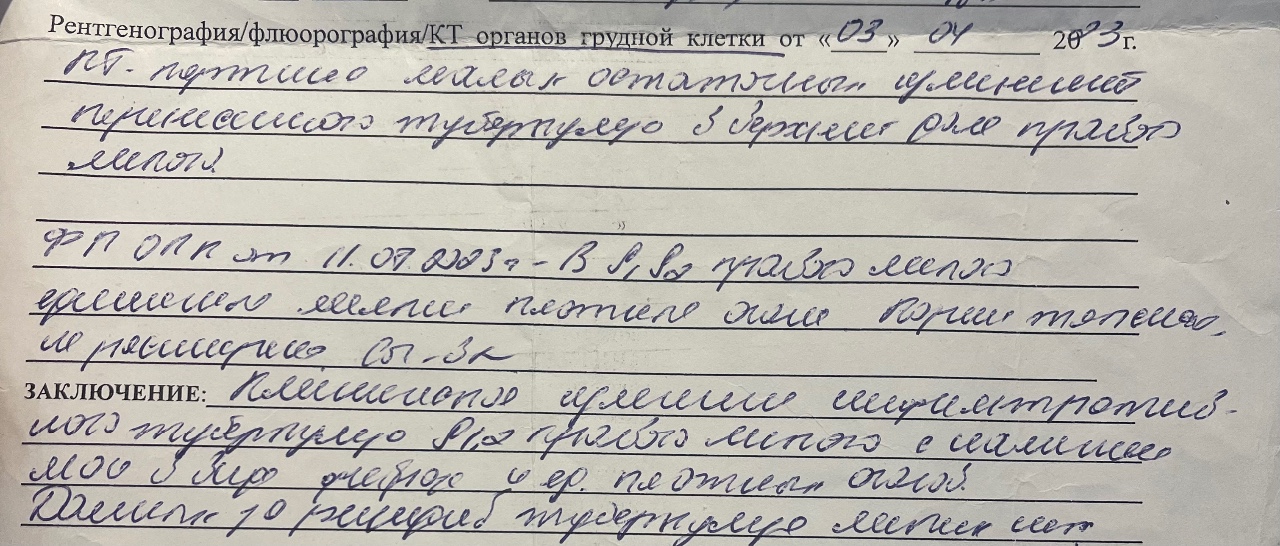 Рентгенография/флюорография/КТ органов грудной клетки от «03» 04 2023г.
КТ-картина малых остаточных изменений
перенесенного туберкулеза в верхней доле правого
легкого.
ФГ ОГК от 11.07.2023г - В S1, S2 правого легкого
единичные мелкие плотные очаги Корни
не расширены
ЗАКЛЮЧЕНИЕ: Клиническое излечение инфильтратив-
ного туберкулеза S1,2 правого легкого с наличием
МОИ в виде фиброза и ед. плотных очагов.
Данных за рецидив туберкулеза легких нет